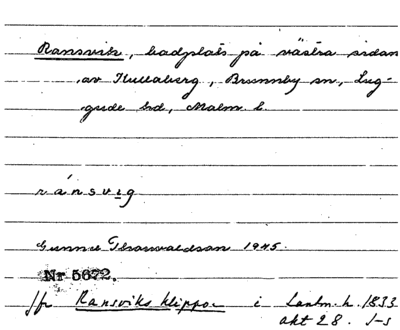 Ransvik, badplats på västra sidan
av Kullaberg, Brunnby sn, Lug-
gude hd, Malm. l.
ránsvig
Gunnar Thorvaldson 1945.
Nr 5672.
jfr Ransviks klippor i Lantm. h. 1833
akt 28. J-s